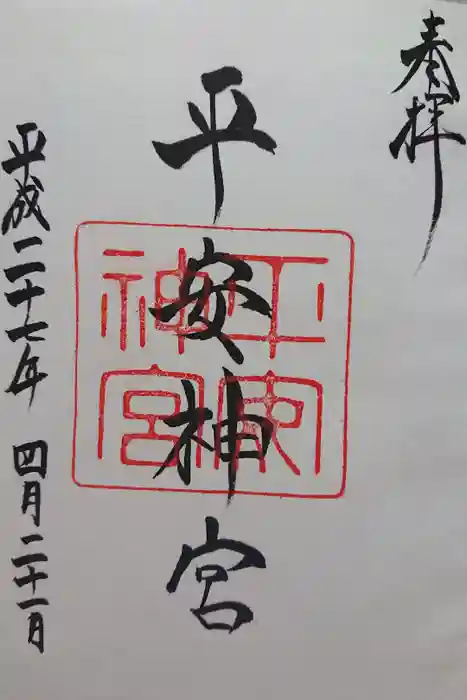 奉拝
平安神宮
平安
神宮
平成二十七年 四月二十一日